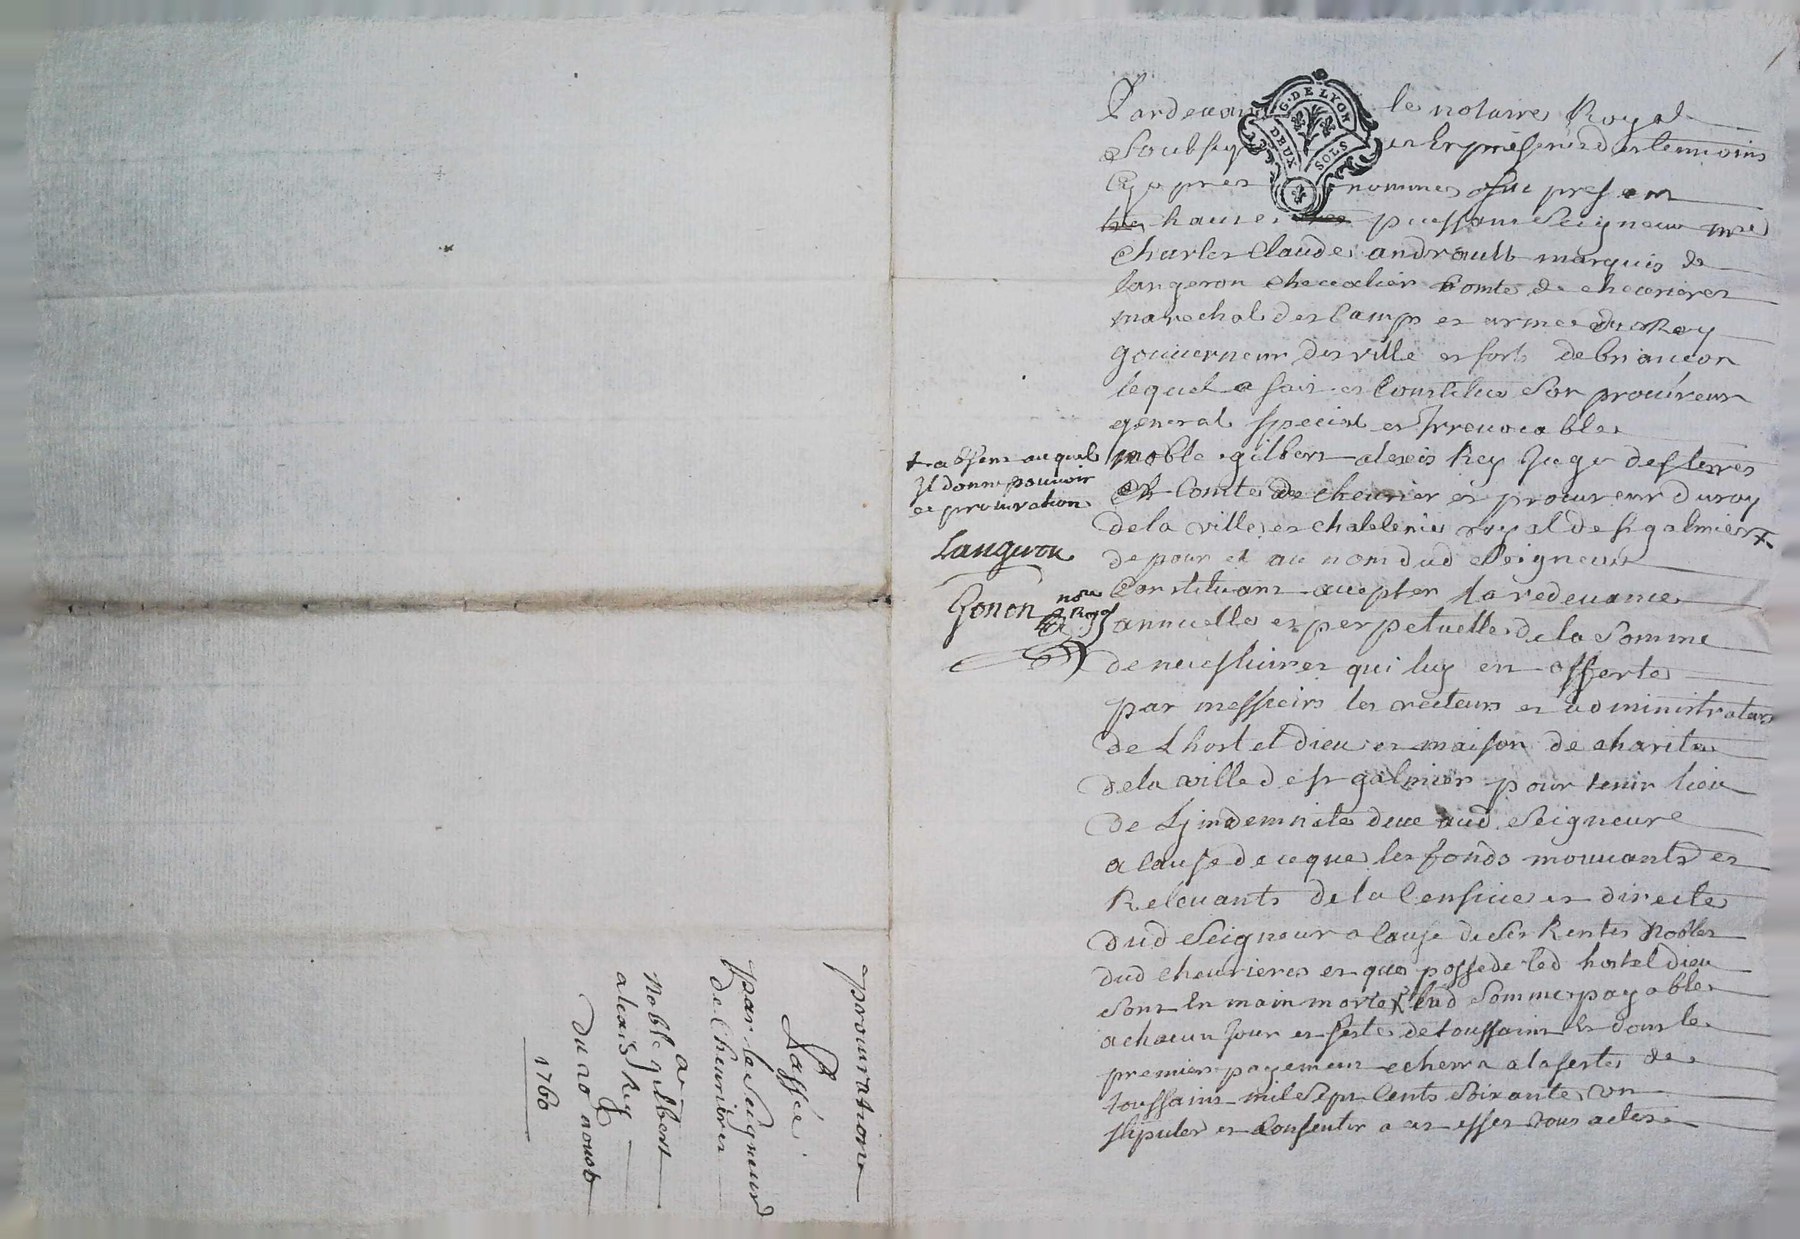 Pardevant le notaire Royal
Soubsigné et En presence des temoins
Cy apres nommes fut present
haut et puissant Seigneur mre
Charles Claude andrault marquis de
Langeron chevalier Comte de chevrieres
marechal des Camps et armees du Roy
gouverneur des ville et forts de briancon
lequel a fait et Constitué Son procureur
general special et Irrevocable
noble gilbert alexis Rey Juge des terres
et Comté de chevrier et procureur du roy
de la ville et chatelenie royal de st galmier +
de pour et au nom dud Seigneur
Constituant accepter la redevance
annuelle et perpetuelle de la Somme
de neuf livres qui luy est offerte
par messieurs les recteurs et administrateurs
de Lhostel dieu et maison de charité
de la ville de st galmier pour tenir lieu
de Lindemnité deue aud Seigneur
a Cause de ce que les fonds mouvants et
Relevants de la Censive et directe
dud Seigneur a Cause de Ses Rentes Nobles
dud chevrieres et que possede led hostel dieu
Sont En main morte lad Somme payable
a chacun Jour et feste de toussaint Et dont le
premier payement echerra a la feste de
toussaint mil Sept Cents Soixante un
stipuler et Consentir a cet effet tous actes
+ absent auquel
Il donne pouvoir
et procuration
Langeron
Gonon
nore
Royal
procuration
Passée
par le Seigneur
de Chevrieres
a
Noble gilbert
alexis Rey
Du 20 aoust
1760